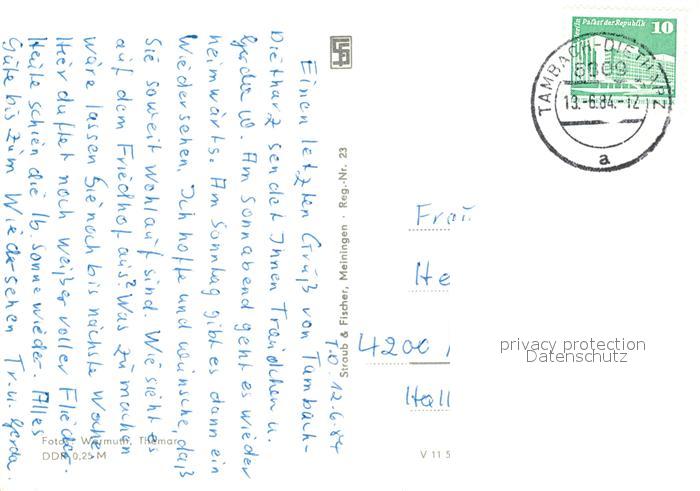 Einen letzten Gruß von Tambach-
Dietharz sendet Ihnen Traudchen u.
Gerda W. Am Sonnabend geht es wieder
heimwärts. Am Sonntag gibt es dann ein
Wiedersehen. Ich hoffe und wünsche, daß
Sie soweit wohlauf sind. Wie sieht es
auf dem Friedhof aus? Was zu machen
wäre lassen Sie noch bis nächste Woche.
Hier duftet noch weißer voller Flieder.
Heute schien die lb. Sonne wieder. Alles
Gute bis zum Wiedersehen Tr. u. Gerda.
T.D. 12.6.84
Straub & Fischer, Meiningen · Reg.-Nr. 23
Foto: Wermuth, Themar
DDR 0,25 M
V 11 5
Berlin Palast der Republik 10
TAMBACH-DIETHARZ
5809
13.-6.84.-12
a
Frau
He
4200
Hall
privacy protection
Datenschutz